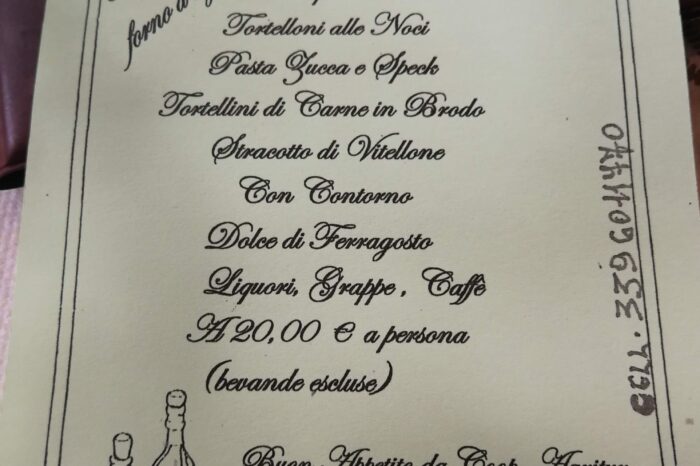 forno a
Tortelloni alle Noci
Pasta Zucca e Speck
Tortellini di Carne in Brodo
Stracotto di Vitellone
Con Contorno
Dolce di Ferragosto
Liquori, Grappe, Caffè
A 20,00 € a persona
(bevande escluse)
Buon Appetito da Coop.
CELL. 339 6011770